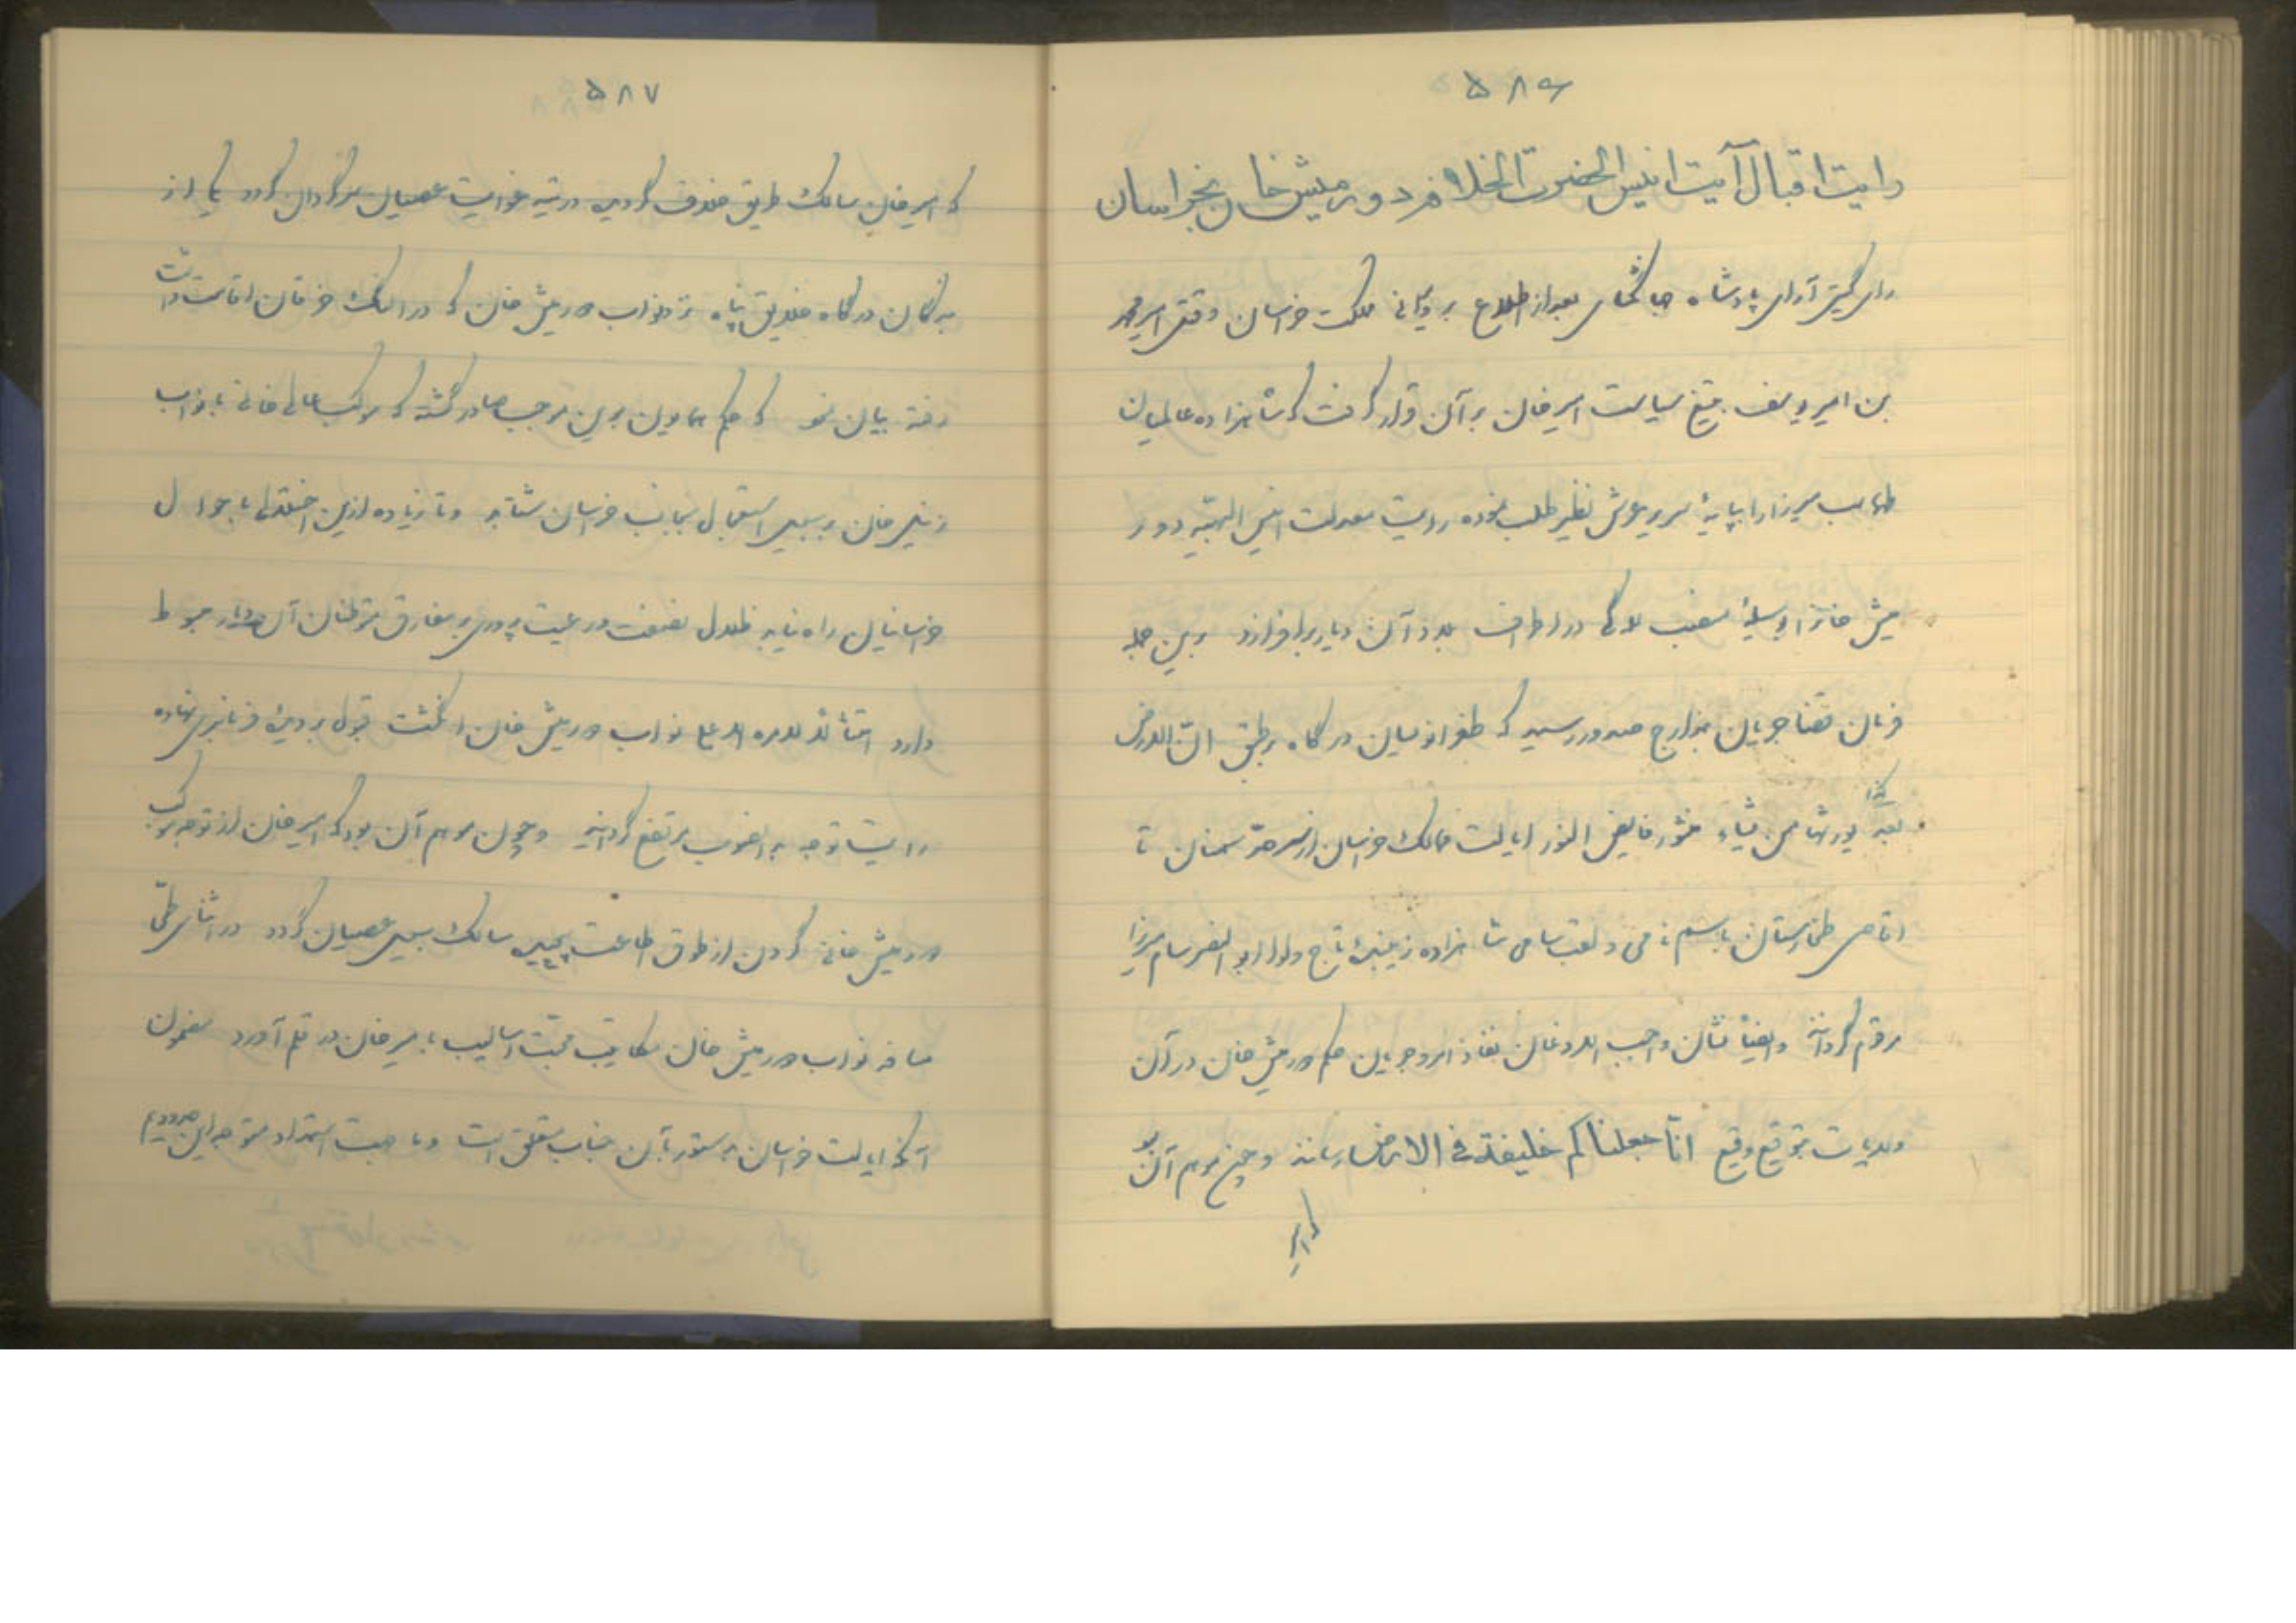 ۵۸۶
رایت اقبال آیت انیس الحضرت الخلافه دورمیش خان بخراسان
رای گیتی آرای پادشاه جهانگشای بعد از اطلاع بر ویرانی مملکت خراسان و قتل امیر محمد
بن امیر یوسف بتیغ سیاست امیرخان بر آن قرار گرفت که شاهزاده عالمیان
طهماسب میرزا را بپایهٔ سریر عرش نظیر طلب نموده رایت معدلت دور
میش خان را در اطراف بلاد آن دیار برافرازد بدین جمله
فرمان قضا جریان بمدارج صدور رسید که طغرانویسان درگاه بر طبق ان الارض
لله یورثها من یشاء منشور فایض النور ایالت ممالک خراسان از سرحد سمنان تا
اقاصی طخارستان باسم نامی و لقب سامی شاهزاده زیبندهٔ تاج و لوا ابو النصر سام میرزا
مرقوم گردانند و ایضاً نشان واجب الاذعان نفاذ امر و جریان حکم دورمیش خان در آن
ولایات بتوقیع وقیع انّا جعلناکم خلیفة فی الارض رسانند و چون موهم آن بود
که امیر
۵۸۷
که امیرخان سالک طریق خلاف گردیده در تیه غوایت عصیان سرگردان گردد یکی از
ملازمان درگاه خلایق پناه نزد نواب دورمیش خان که در النگ خرقان اقامت داشت
رفته بیان نمود که حکم همایون بدین موجب صادر گشته که موکب عالی خانی با نواب
زینل خان بر سبیل استعجال بجانب خراسان شتابد و تا زیاده ازین اختلال باحوال
خراسانیان راه نیابد ظلال نصفت و رعیت پروری بر مفارق متوطنان آن دیار مبسوط
دارد امتثالاً للامر الاعلی نواب دورمیش خان انگشت قبول بر دیدهٔ فرمانبری نهاده
رایت توجه بدانصوب مرتفع گردانید و چون موهم آن بود که امیرخان از توجه موکب
دورمیش خانی گردن از طوق اطاعت پیچیده سالک سبیل عصیان گردد در اثنای طی
مسافه نواب دورمیش خان مکاتیب محبت اسالیب بامیرخان در قلم آورد مضمون
آنکه ایالت خراسان بدستور بآن جناب متعلق است و ما جهت استمداد متوجه این حدودیم